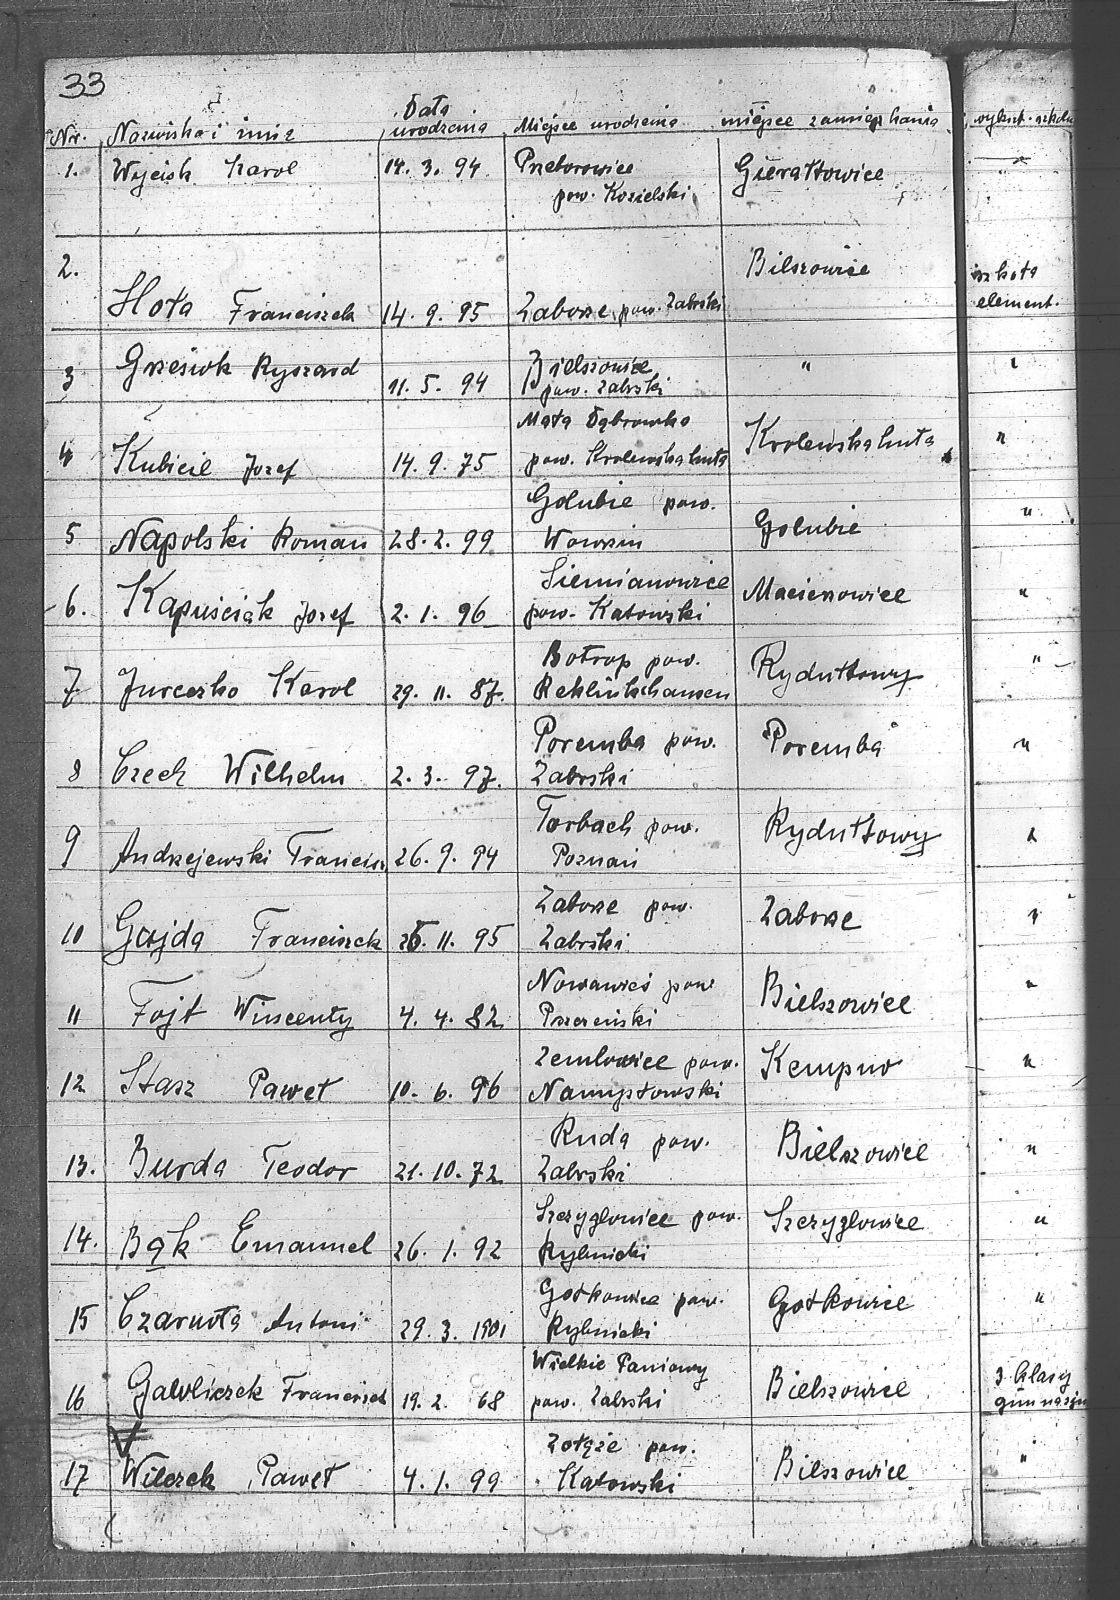 33
Nr. Nazwiska i imię Data urodzenia Miejsce urodzenia miejsce zamieszkania wykszt. szkolne
1. Wojcish Karol 14. 3. 94 Przeborowice Gierałtowice "
pow. Kozielski
2. Bilszowice szkoła
Hota Franciszek 14. 9. 95 Zaborze pow. Zabrski element.
3 Grześiok Ryszard 11. 5. 94 Bielszowice " "
pow. Zabrski
Mała Dąbrowka
4 Kubicie Jozef 14. 9. 75 pow. Krolewska huta Krolewska huta "
Golubie pow.
5 Napolski Roman 28. 2. 99 Golubie "
6. Kapuściak Jozef 2. 1. 96 Siemianowice Macienowice "
pow. Katowski
Botrop pow.
7 Jureczko Karol 29. 11. 87. Reklinkhausen Rydułtowy "
Poremba pow.
8 Czech Wilhelm 2. 3. 97. Zabrski Poremba "
Torbach pow.
9 Andrzejewski Francisz 26. 9. 94 Poznań Rydułtowy "
Zaborze pow.
10 Gajda Franciszek 25. 11. 95 Zabrski Zaborze "
Nowawieś pow
11 Fojt Wincenty 4. 4. 82 Pszczeński Bielszowice "
Zembowice pow.
12 Stasz Paweł 10. 6. 96 Namysłowski Kempno "
Ruda pow.
13. Burda Teodor 21. 10. 72 Zabrski Bielszowice "
Szczyglowice pow.
14. Bąk Emanuel 26. 1. 92 Rybnicki Szczyglowice "
Gotkowice pow.
15 Czarnota Antoni 29. 3. 1901 Rybnicki Gotkowice "
Wielkie Paniowy 3 klasy
16 Galvliczek Franciszek 19. 2. 68 pow. Zabrski Bielszowice gimnazju
Zołęże pow.
17 Wilczek Paweł 4. 1. 99 Katowski Bilszowice "